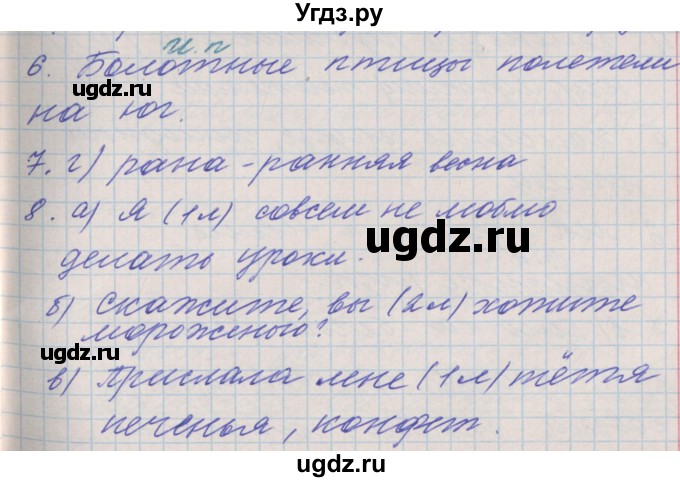 Угдз.ру
И.п
6. Болотные птицы полетели
угдз.ru
на юг.
7. г) рана - ранняя весна
8. а) Я (1л) совсем не люблю
угдз.ru
делать уроки.
б) Скажите, вы (2л) хотите
мороженого?
угдз.ru
в) Прислала мне (1л) тётя
печенья, конфет.
угдз.ru
угдз.ru